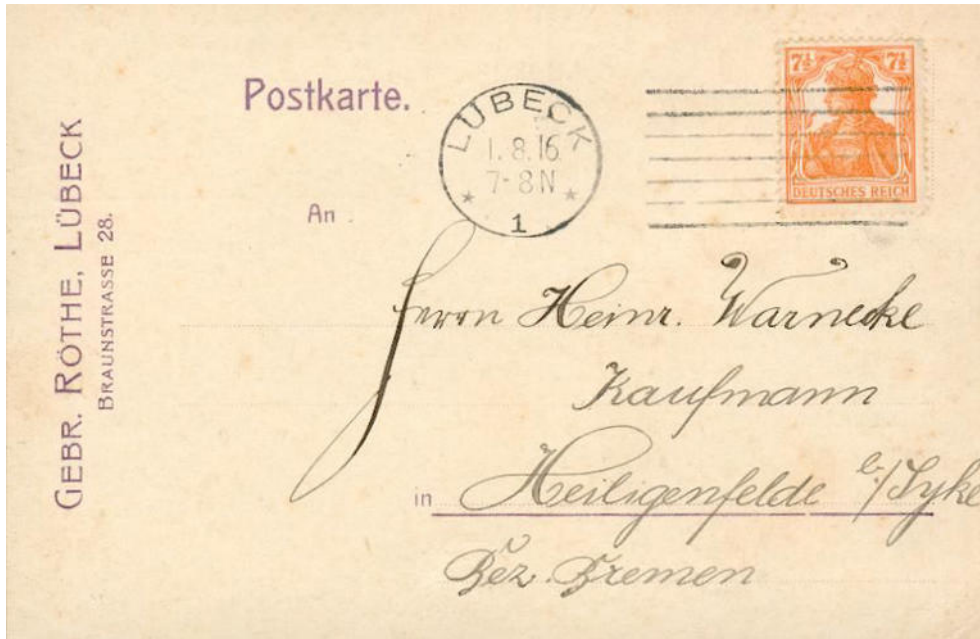 GEBR. RÖTHE, LÜBECK
BRAUNSTRASSE 28.
Postkarte.
LÜBECK
1.8.16
7-8N
* *
1
7½ 7½
DEUTSCHES REICH
An
Herrn Heinr. Warnecke
Kaufmann
in Heiligenfelde b/Syke
Bez. Bremen